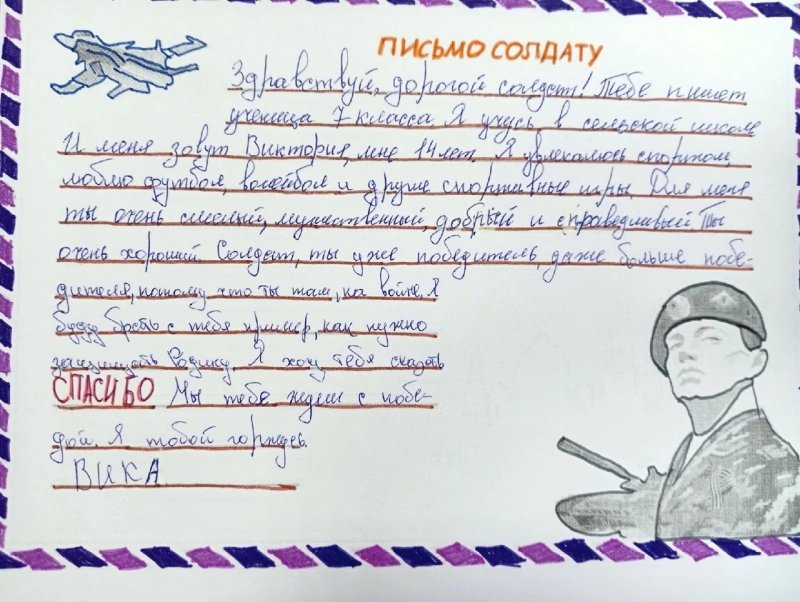 ПИСЬМО СОЛДАТУ
Здравствуй, дорогой солдат! Тебе пишет
ученица 7 класса. Я учусь в сельской школе
И меня зовут Виктория, мне 14 лет. Я увлекаюсь спортом,
люблю футбол, волейбол и другие спортивные игры. Для меня
ты очень смелый, мужественный, добрый и справедливый. Ты
очень хороший. Солдат, ты уже победитель, даже больше побе-
дителя, потому что ты там, на войне. Я
буду брать с тебя пример, как нужно
защищать Родину. Я хочу тебя сказать
СПАСИБО Мы тебе ждем с побе-
дой. Я тобой горжусь.
ВИКА